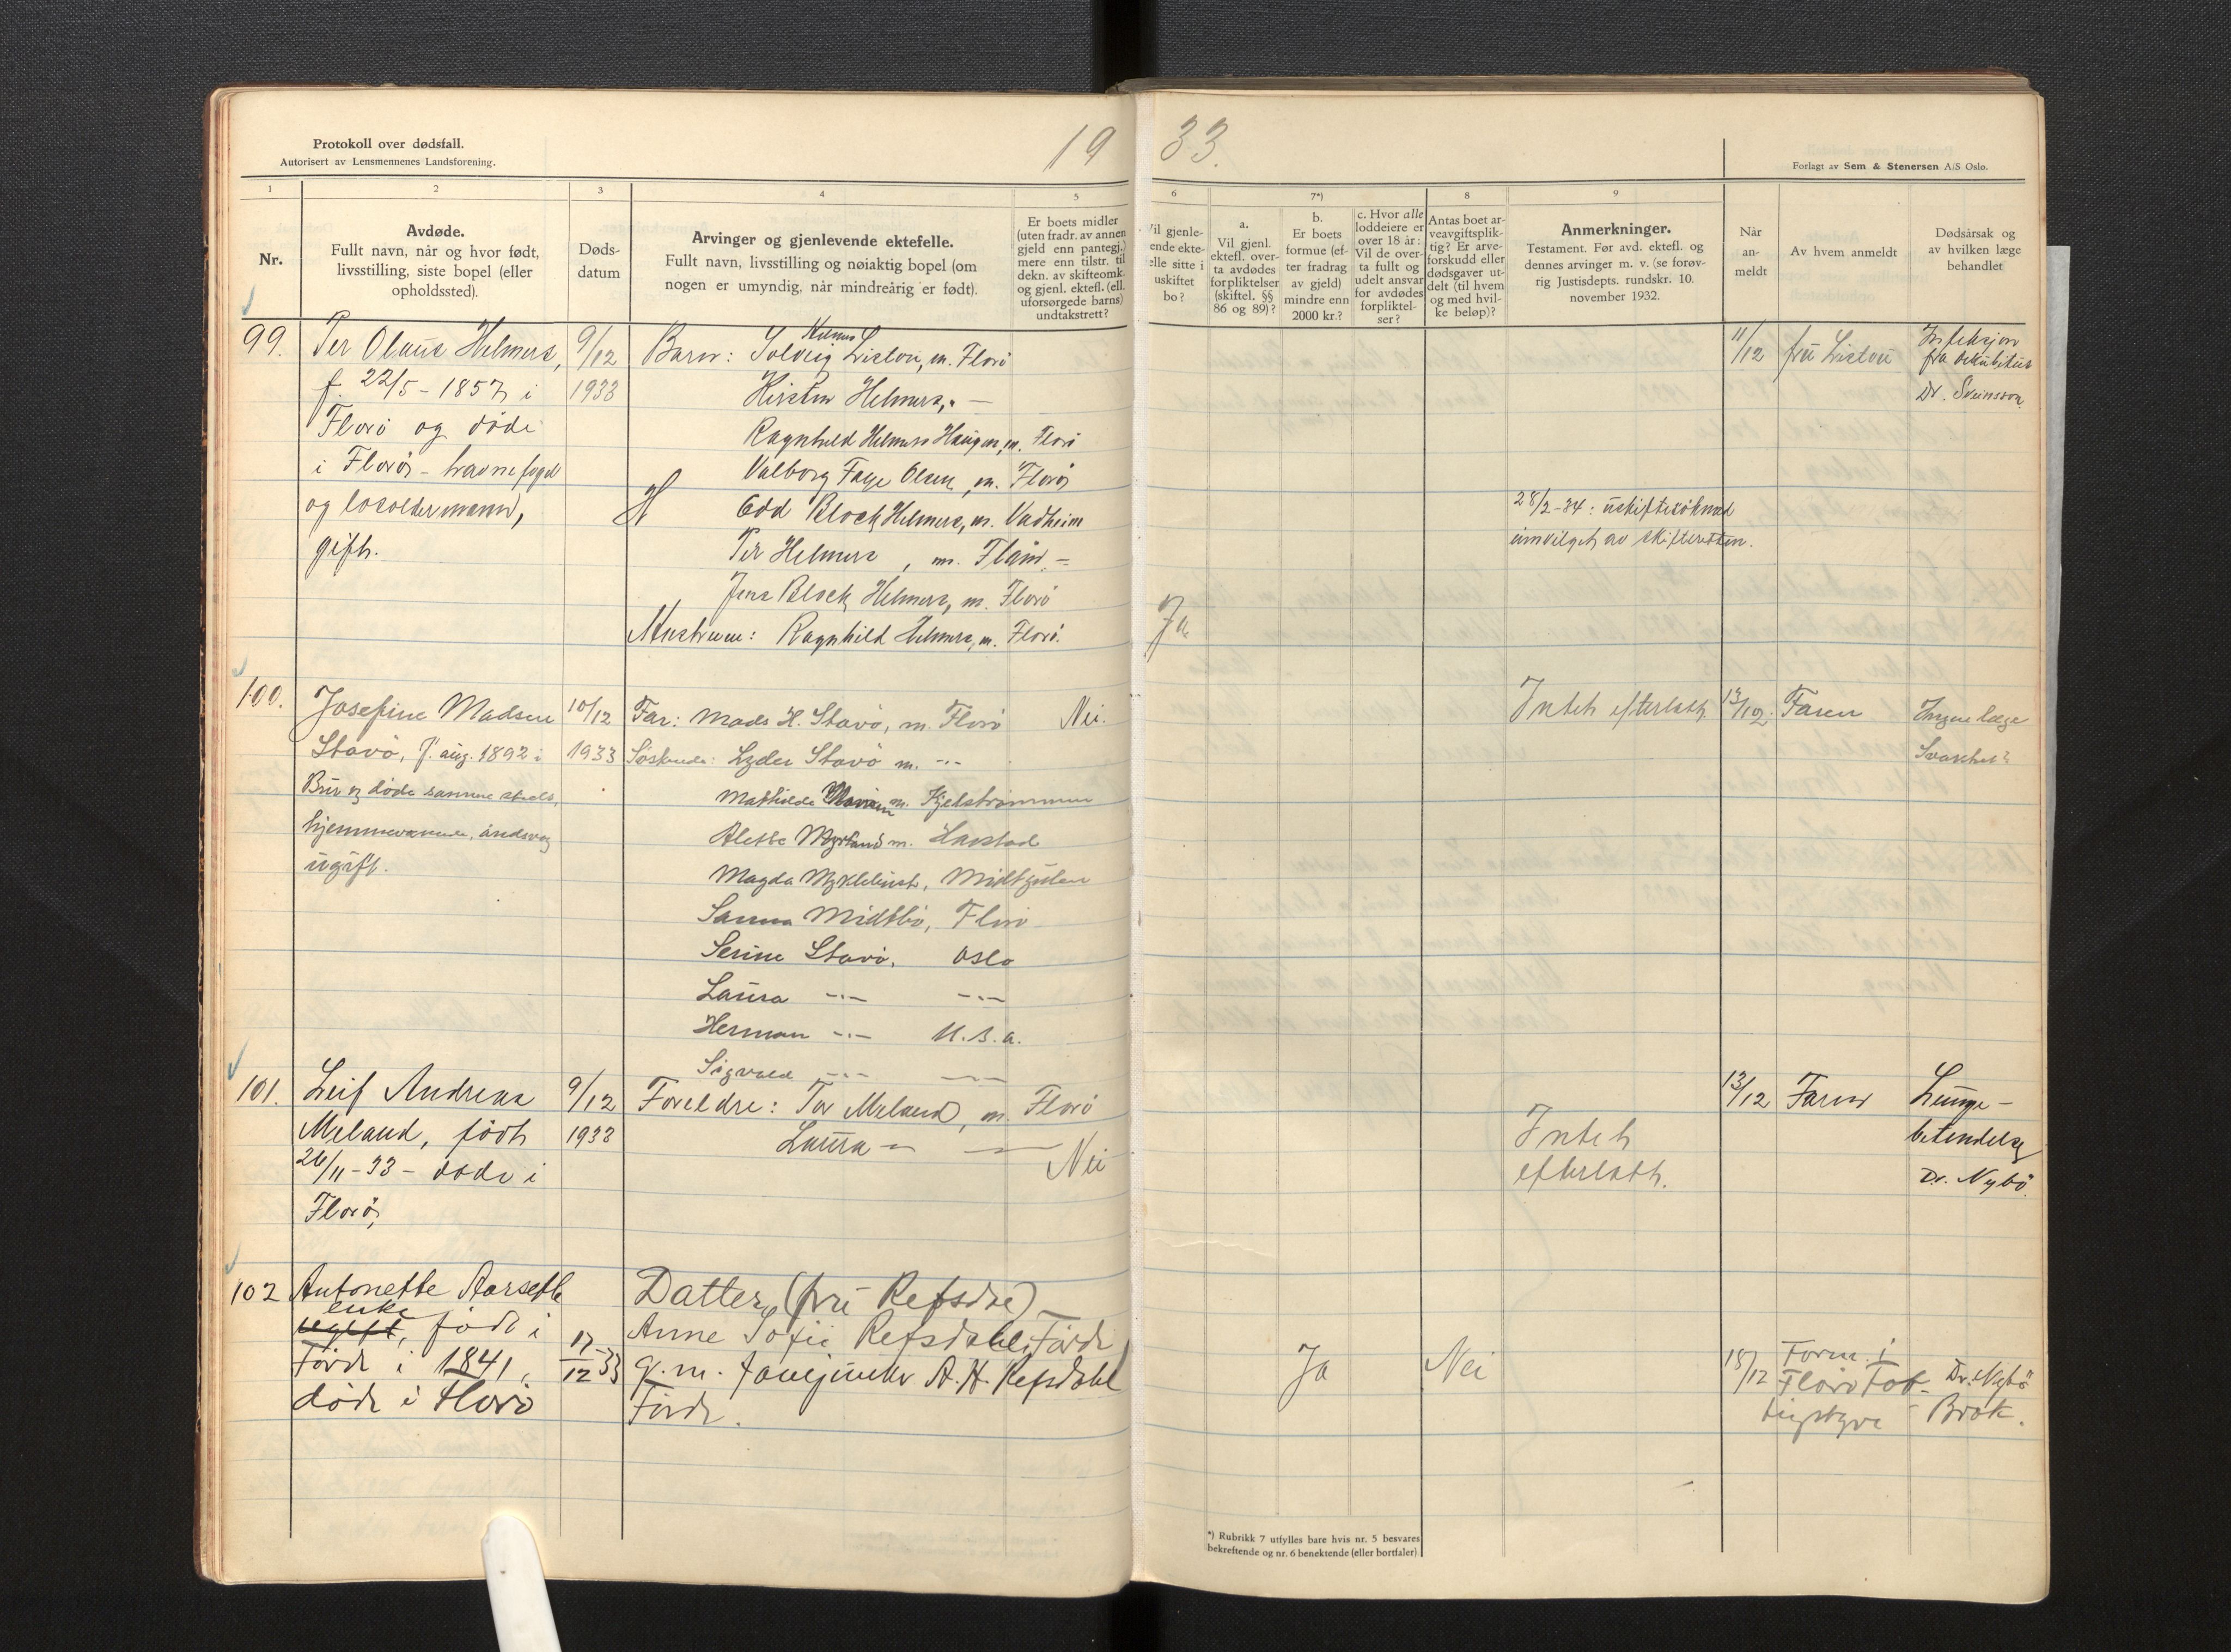 Protokoll over dødsfall.
Autorisert av Lensmennenes Landsforening.
19 33.
Forlagt av Sem & Stenersen A/S Oslo.
1 2 3 4 5 6 7*) 8 9
Nr.
Avdøde.
Fullt navn, når og hvor født,
livsstilling, siste bopel (eller
opholdssted).
Døds-
datum
Arvinger og gjenlevende ektefelle.
Fullt navn, livsstilling og nøiaktig bopel (om
nogen er umyndig, når mindreårig er født).
Er boets midler
(uten fradr. av annen
gjeld enn pantegj.)
mere enn tilstr. til
dekn. av skifteomk.
og gjenl. ektefl. (ell.
uforsørgede barns)
undtakstrett?
Vil gjenle-
ende ekte-
elle sitte i
uskiftet
bo?
a.
Vil gjenl.
ektefl. over-
ta avdødes
forpliktelser
(skiftel. §§
86 og 89)?
b.
Er boets
formue (ef-
ter fradrag
av gjeld)
mindre enn
2000 kr.?
c. Hvor alle
loddeiere er
over 18 år:
Vil de over-
ta fullt og
udelt ansvar
for avdødes
forpliktel-
ser?
Antas boet ar-
veavgiftsplik-
tig? Er arve-
forskudd eller
dødsgaver ut-
delt (til hvem
og med hvil-
ke beløp)?
Anmerkninger.
Testament. Før avd. ektefl. og
dennes arvinger m. v. (se forøv-
rig Justisdepts. rundskr. 10.
november 1932.
Når
an-
meldt
Av hvem anmeldt
Dødsårsak og
av hvilken læge
behandlet
99.
Per Olaus Helmers,
f. 22/5 - 1857 i
Florö og döde
i Florö - havnefoged
og losoldermann,
gift.
9/12
1933
Helmers
Barn: Solveig Liston, m. Florö
Kirsten Helmers, -
Ragnhild Helmers Haugen, m. Florö
Valborg Faye Olsen, m. Florö
Odd Block Helmers, m. Vadheim
Per Helmers, m. Flåm. -
Jens Block Helmers, m. Florö
Hustruen: Ragnhild Helmers, m. Florö.
Ja
28/2-34: uskiftesöknad
innvilget av skifteretten.
11/12
fru Liston
Infeksjon
fra dekubitus
Dr. Sveinsson.
100.
Josefine Madsen
Stavö, f. aug. 1892 i
Bru og döde samme steds,
hjemmeværende, åndsvag
ugift.
10/12
1933
Far: Mads H. Stavö, m. Florö
Söskende: Lyder Stavö m. -"-
Mathilde m. Hjelstrommen
Alette Myrland m. Harstad
Magda Myklebust, Midtgulen
Sanna Midtbö, Florö
Serine Stavö, Oslo
Laura -"- -"-
Herman -"- U.S.A.
Sigvald -"- -"-
Nei.
Intet efterlatt
13/12.
Faren
Ingen læge
Svakhet?
101.
Leif Andreas
Meland, födt
26/11-33 - döde i
Florö,
9/12
1933
Foreldre: Tor Meland, m. Florö
Laura -"- -"-
Nei
Intet
efterlatt.
13/12
Faren
Lunge-
betendelse
Dr. Nybö.
102
Antonette Aarseth
enke
ugift, födt i
Förde i 1841,
döde i Florö
17/12 33
Datter (fru Refsdal)
Anne Sofie Refsdahl, Förde
g. m. fanejunker A. H. Refsdahl
Förde.
Ja
Nei
18/12
Form. i
Florö Fat-
tigstyre
Dr. Nybö
- Brok.
*) Rubrikk 7 utfylles bare hvis nr. 5 besvares
bekreftende og nr. 6 benektende (eller bortfaler)